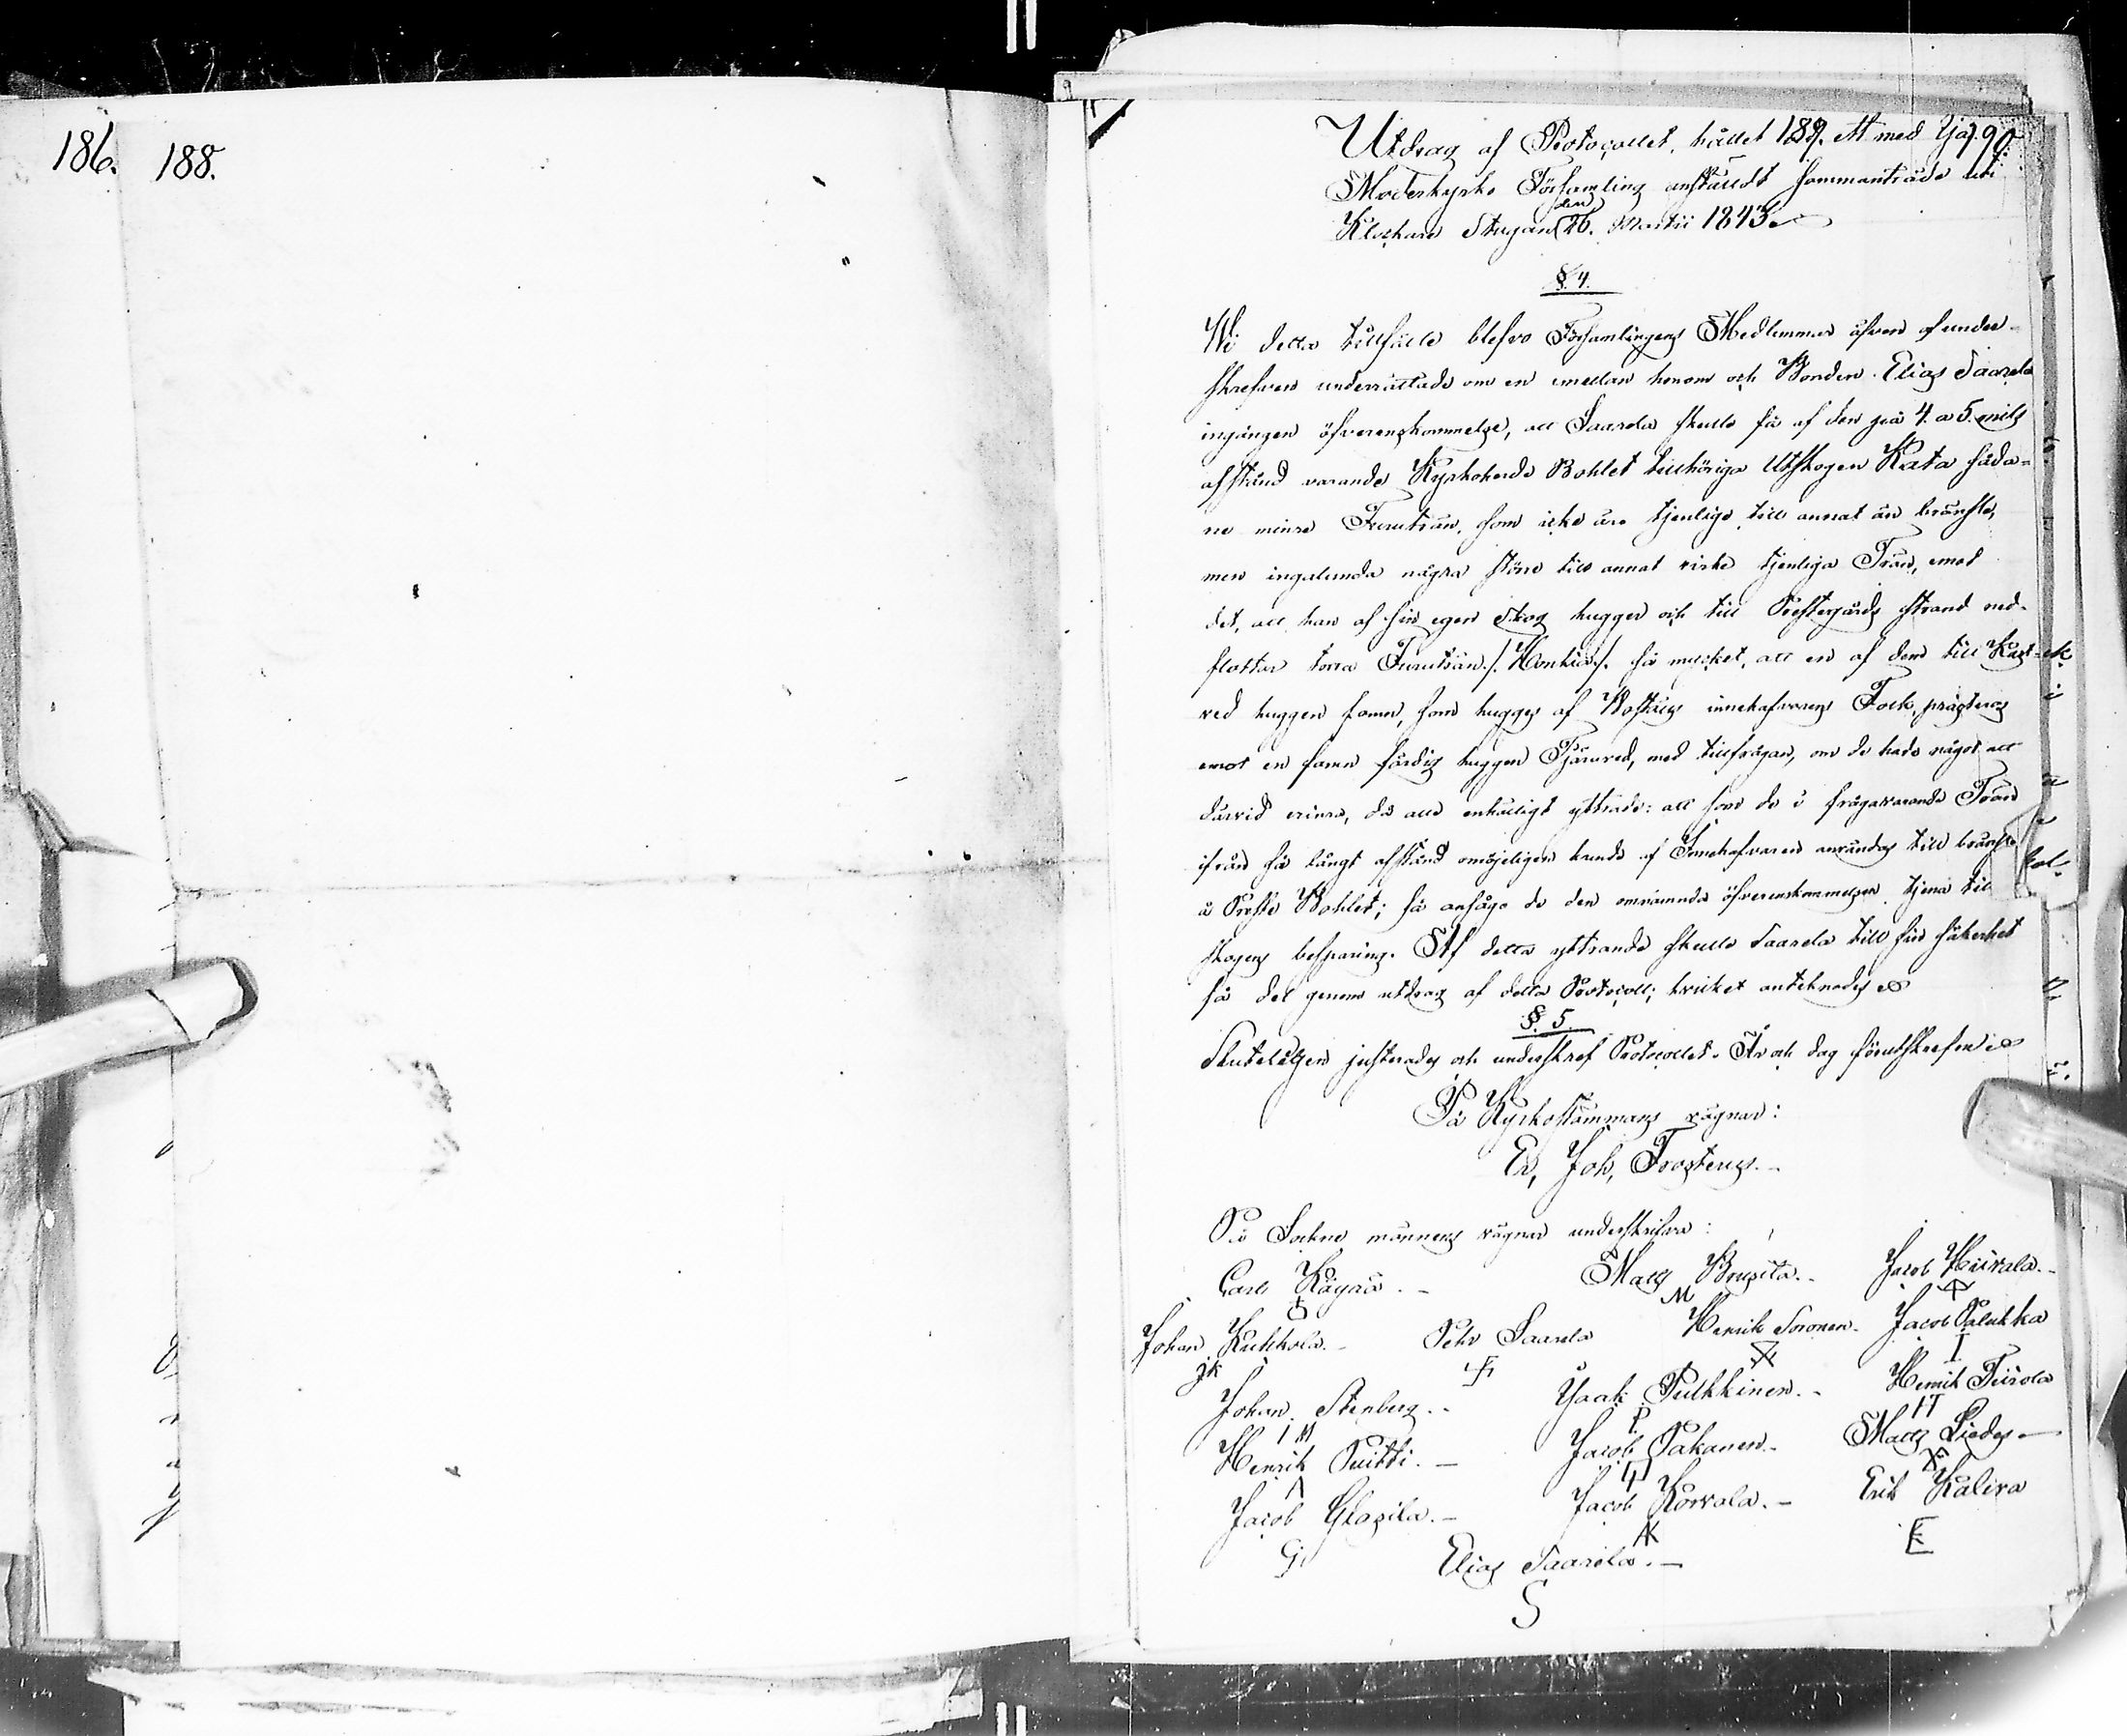 186.
188.
Utdrag af Protocollet, hållet 189. M med Ijo 190
Moderkyrko Församling anstäldt sammanträde uti
Klockare Stugan den 26. Martii 1843.
§. 4.
Wi detta tillfälle blefvo Församlingens Medlemmar äfven af under-
skrefven underrättade om en emellan honom och Bonden Elias Saarela
ingången öfverenskommelse, att Saarela skulle få af den på 4. a 5. mils
afstånd varande Kyrkoherde Bohlet tillhöriga Utskogen Kata såda-
ne minre Furuträn, som icke äro tjenlige till annat än bränsle,
men ingalunda några större till annat virke tjenliga Trän, emot
det, att han af sin egen Skog hugger och till Prestegårds strand ned-
flottar torra Furuträn /: Honkia :/ så mycket, att en af dem till Kast-
ved huggen famn, som hugges af Boställs innehafvarens Folk, prästeras
emot en famn färdig huggen Tjärved, med tillfrågan, om de hade något att
därvid erinra, då alla enhälligt yttrade: att som de i frågavarande Trän
ifrån så långt afstånd omöjeligen kunde af Innehafvaren användas till bränsle
å Preste Bohlet; så ansågo de den omnämnda öfverenskommelsen tjena till
skogens besparing. Af detta yttrande skulle Saarela till sin säkerhet
få del genom utdrag af detta Protocoll; hvilket antecknades
§. 5.
Skuteligen justerades och underskref Protocollet. År och dag förutskrefne
På Kyrkostämmans vägnar:
Er, Joh, Frosterus.
På Sockne männens vägnar underskrifva:
Carl Räyää. Matts Bru​sila. Jacob Hiivala.
Johan Kukkola. Pehr Saarela Henrik Soronen. Jacob Palukka
JK M I
Johan Stenberg. Isak Pulkkinen. Henrik Tiirola
IM P. HT
Henrik Puitti. Jacob Pakanen. Matts Liedes
Jacob Glasila. Jacob Korvala. Erik Kaliva
G. Elias Saarela. K E
S